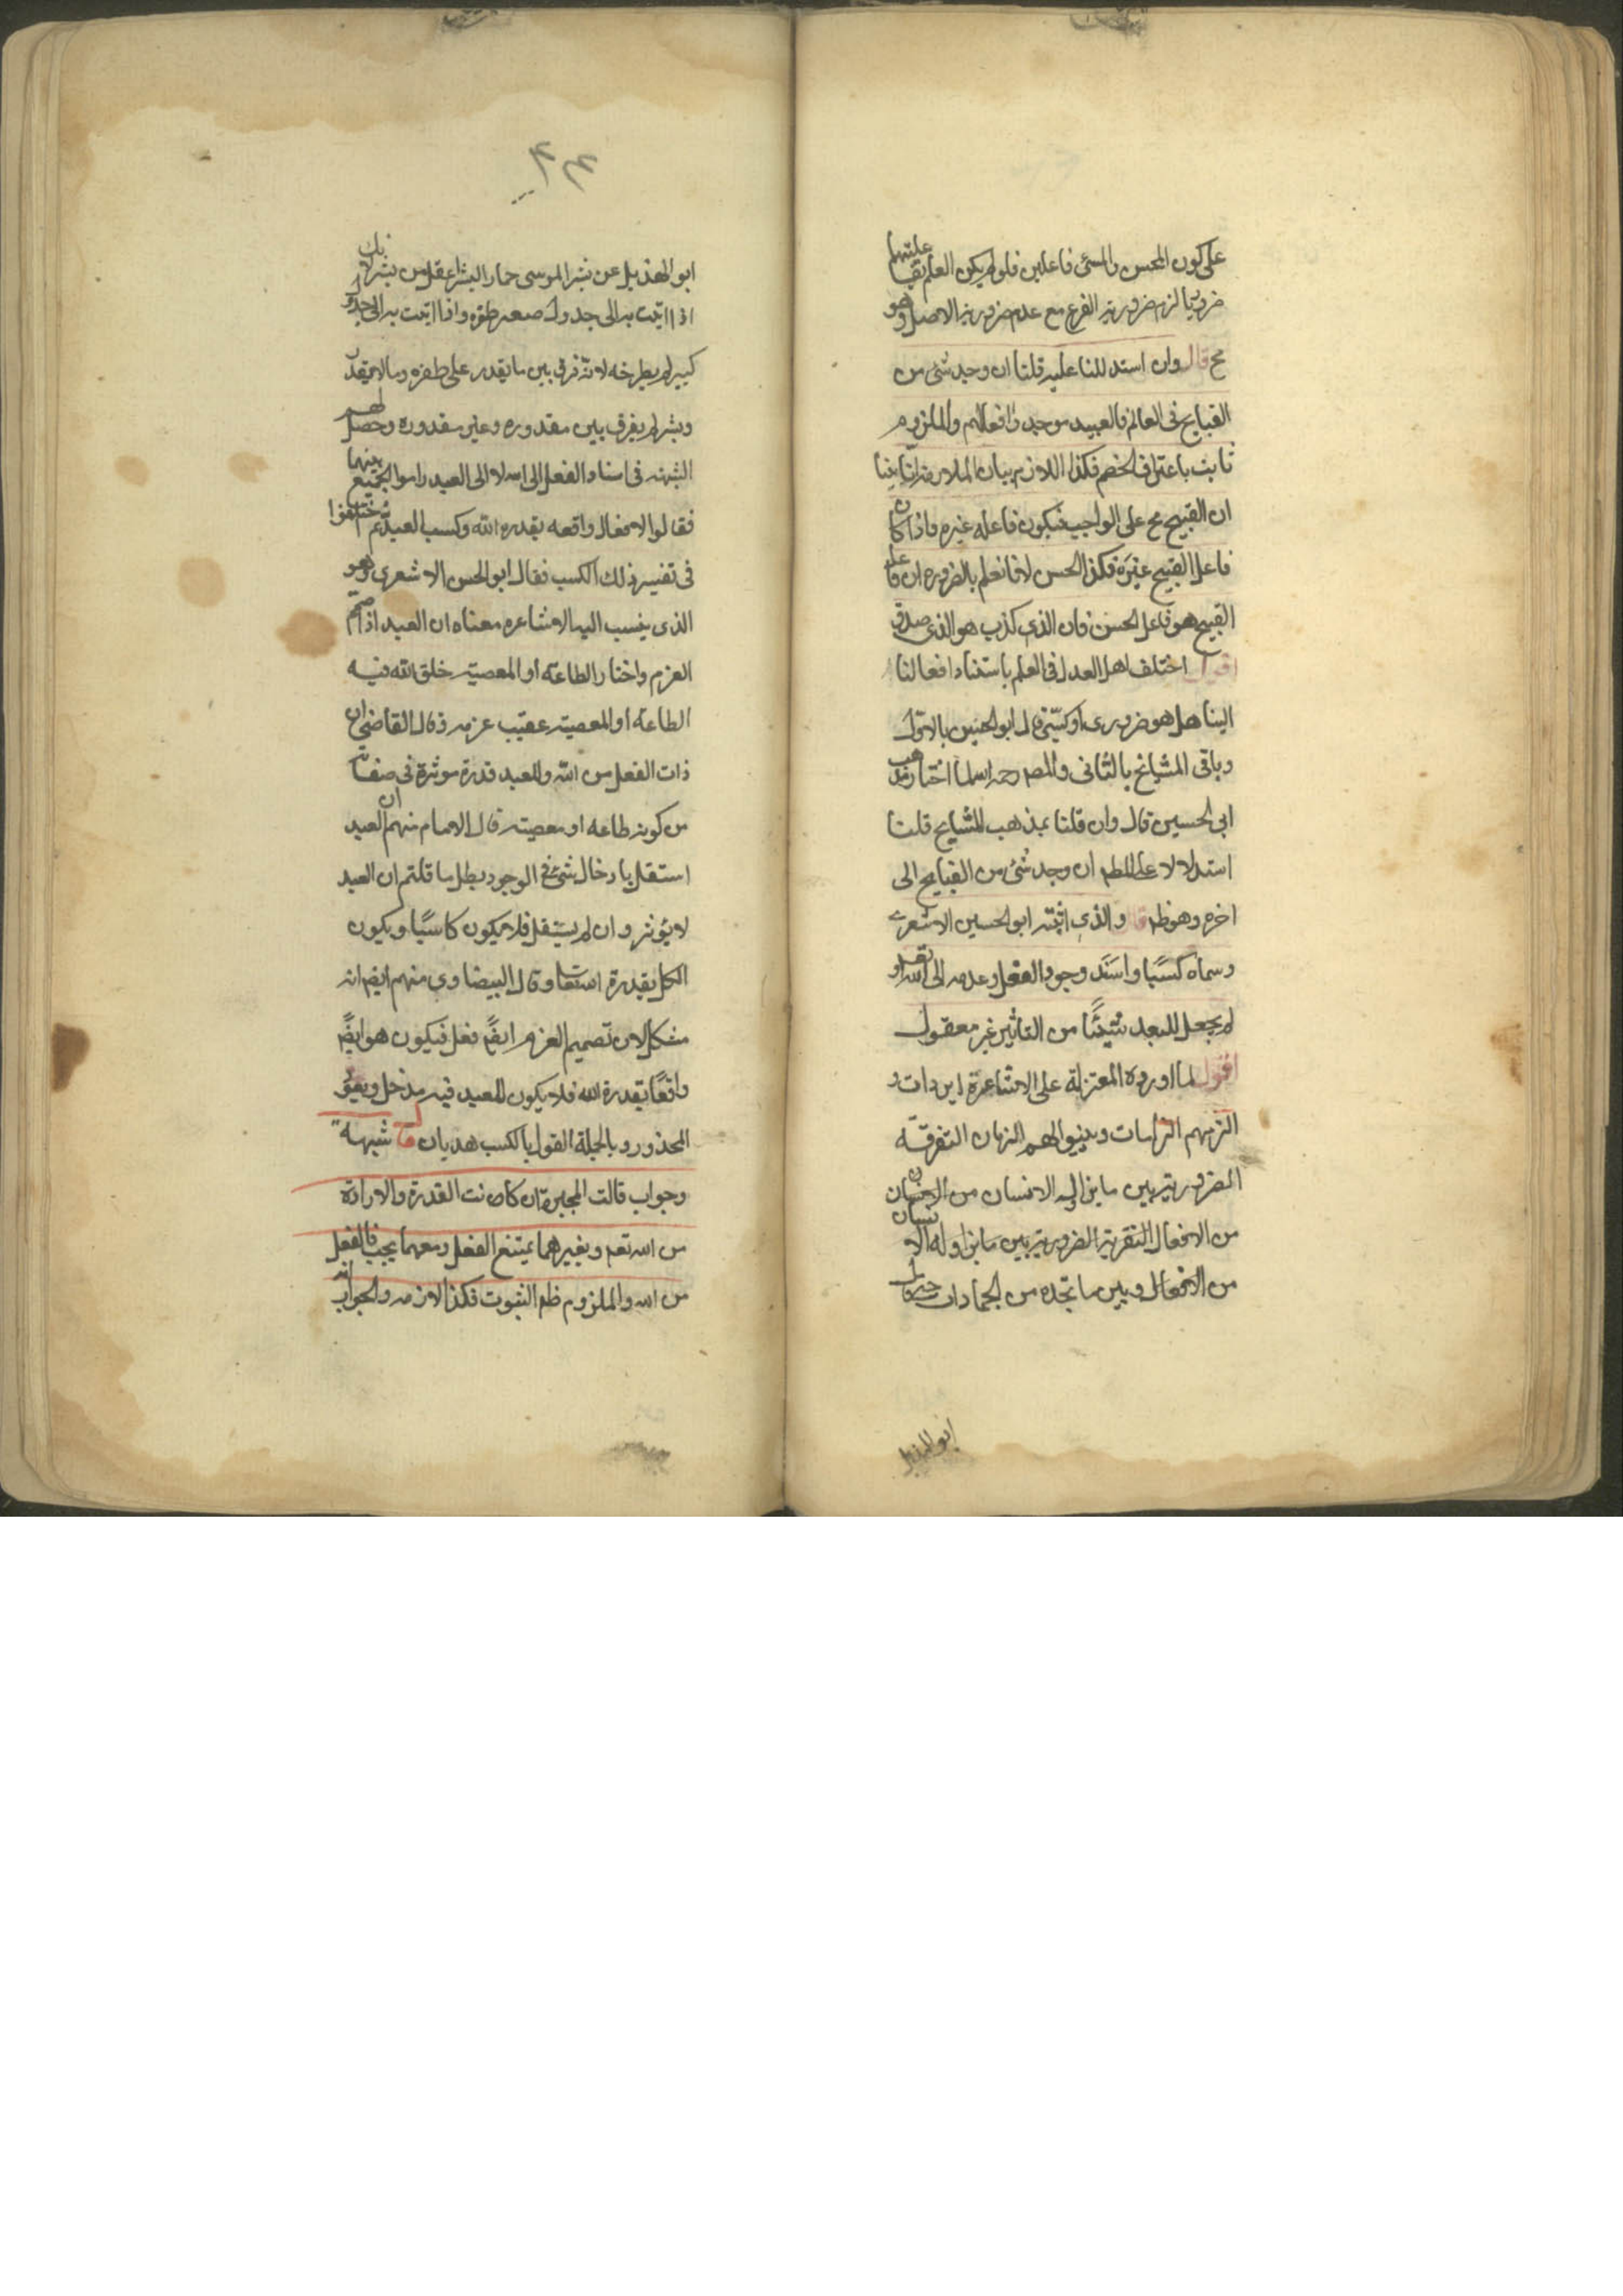 على كون المحسن والمسئ فاعلين فلو لم يكن العلم بفاعليتهما
ضروريا لزم ضرورية الفرع مع عدم ضرورية الاصل وهو
مح قال وان استدللنا عليه قلنا ان وجد شئ من
القبايح فى العالم فالعبيد موجدوا افعالهم والملزوم
ثابت باعتراف الخصم فكذا اللازم بيان الملازمة انا بينا
ان القبيح مح على الواجب فيكون فاعله غيره فاذا كان
فاعل القبيح غيره فكذا الحسن لانا نعلم بالضرورة ان فاعل
القبيح هو فاعل الحسن فان الذي كذب هو الذي صدق
اقول اختلف اهل العدل فى العلم باستناد افعالنا
الينا هل هو ضروري او كسبي قال ابو الحسين بالاول
وباقى المشايخ بالثانى والمص رحمه الله لما اختار مذهب
ابى الحسين قال وان قلنا بمذهب المشايخ قلنا
استدلالا على المط ان وجد شئ من القبايح الى
اخره وهو ظ قال والذي اثبته ابو الحسين الاشعري
وسماه كسبا واسند وجود الفعل وعدمه الى الله تعالى و
لم يجعل للعبد شيئا من التاثير غير معقول
اقول لما اورد المعتزلة على الاشاعرة ايرادات و
الزمهم الزامات وبينوا لهم الزمان التفرقه
الضرورية بين ما يزاوله الانسان من
من الافعال التفرقة الضرورية بين ما يزاوله الانسان
من الافعال وبين ما تجده من الجمادات حتى قال
ابو الهذيل
٤٤
ابو الهذيل عن بشر المريسى حمار البشر اعقل من بشر لانك
اذا اتيت به الى جدول صغير طفره واذا اتيت به الى جدول
كبير لم يطرخه لانه فرق بين ما يقدر على طفره وما لا يقدر
وبشر لم يفرق بين مقدوره وغير مقدوره وحصل لهم
الشبهة فى اسناد الفعل الى الله لا الى العبد راموا الجمع بينهما
فقالوا الافعال واقعه بقدرة الله وكسب العبد ثم اختلفوا
فى تفسير ذلك الكسب فقال ابو الحسن الاشعري وهو
الذى ينسب اليه الاشاعره معناه ان العبد اذا صمم
العزم واختار الطاعة او المعصية خلق الله فيه
الطاعة او المعصية عقيب عزمه وقال القاضي ان
ذات الفعل من الله وللعبد قدرة موثرة فى صفات
من كونه طاعه او معصيته وقال الامام منهم ان العبد
استقل بادخال شئ فى الوجود بطل ما قلتم ان العبد
لا يؤثر وان لم يستقل فلا يكون كاسبا ويكون
الكل بقدرة الله تعالى وقال البيضاوي منهم ايضا انه
مشكل لان تصميم العزم ايضا فعل فيكون هو ايضا
واقعا بقدرة الله فلا يكون للعبد فيه مدخل ويعود
المحذور وبالجملة القول بالكسب هذيان قال شبهة
وجواب قالت المجبرة ان كانت القدرة والارادة
من الله تعم وبغيرهما يمتنع الفعل ومعهما يجب فالفعل
من الله والملزوم ظاهر الثبوت فكذا لازمه والجواب انه